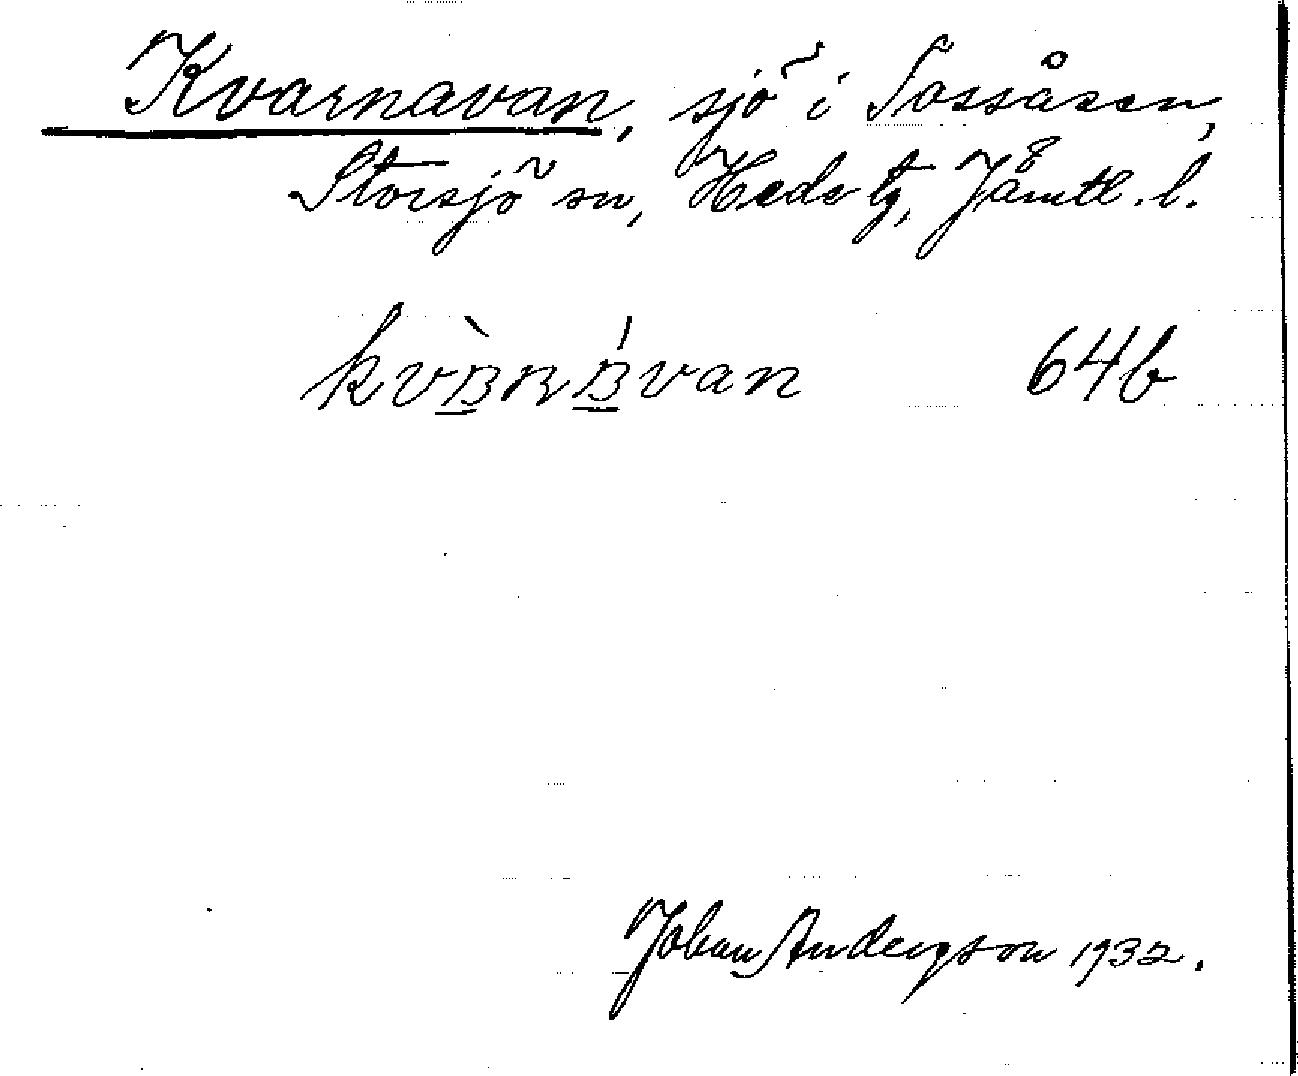 Kvarnavan, sjö i Sossåsen,
Storsjö sn, Hede tg, Jämtl. l.
64b
Johan Andersson 1932.